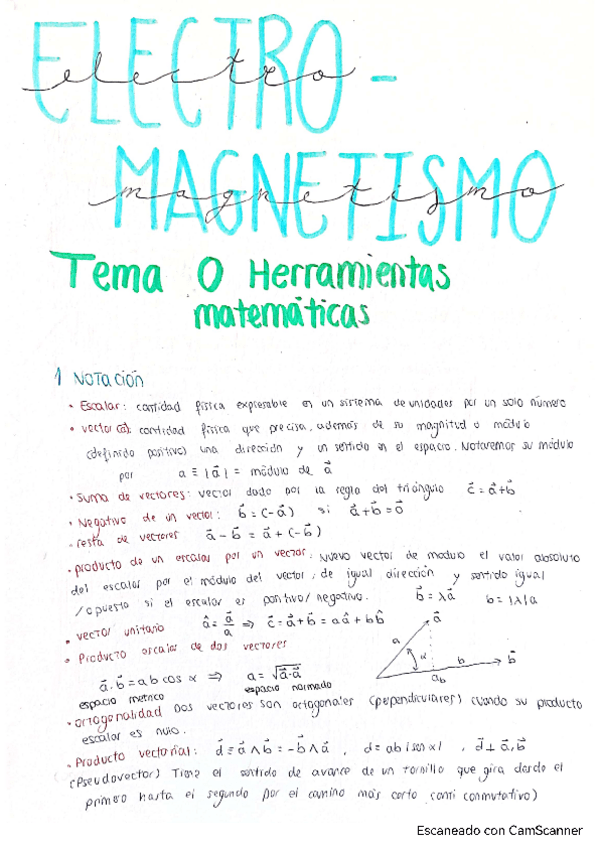 ELECTRO-
electro
MAGNETISMO
magnetismo
Tema 0 Herramientas
matemáticas
1 Notación
• Escalar: cantidad física expresable en un sistema de unidades por un solo número
• vector (a⃗): cantidad física que precisa, además de su magnitud o módulo
(definido positivo) una dirección y un sentido en el espacio. Notaremos su módulo
por a ≡ |a⃗| = módulo de a⃗
• Suma de vectores: vector dado por la regla del triángulo c⃗ = a⃗+b⃗
• Negativo de un vector: b⃗ = (-a⃗) si a⃗+b⃗=0⃗
• resta de vectores a⃗-b⃗ = a⃗+(-b⃗)
• producto de un escalar por un vector: Nuevo vector de modulo el valor absoluto
del escalar por el módulo del vector, de igual dirección y sentido igual
/opuesto si el escalar es positivo/negativo. b⃗ = λa⃗ b = |λ|a
• vector unitario â = a⃗/a ⇒ c⃗ = a⃗+b⃗ = aâ + bb̂
• Producto escalar de dos vectores
a⃗
a
α
b
b⃗
a_b
a⃗·b⃗ = ab cos α ⇒ a = √a⃗·a⃗
espacio metrico espacio normado
• ortogonalidad Dos vectores son ortogonales (perpendiculares) cuando su producto
escalar es nulo.
• Producto vectorial: d⃗ = a⃗∧b⃗ = -b⃗∧a⃗ , d = ab|sen α| , d⃗ ⊥ a⃗,b⃗
(Pseudovector) Tiene el sentido de avance de un tornillo que gira desde el
primero hasta el segundo por el camino más corto (anti conmutativo)
Escaneado con CamScanner